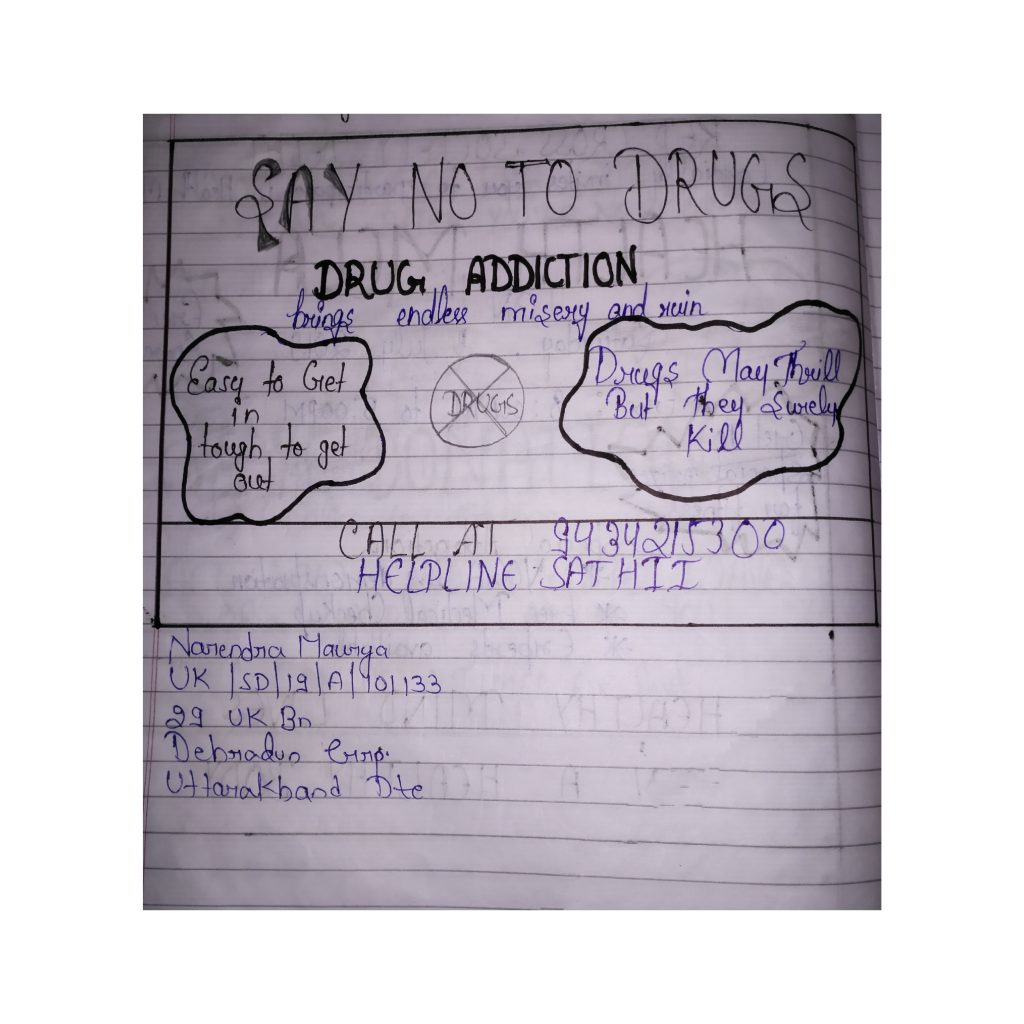 SAY NO TO DRUGS
DRUG ADDICTION
brings endless misery and ruin
Easy to Get
in
tough to get
out
DRUGS
Drugs May Thrill
But they Surely
Kill
CALL AT 9434215300
HELPLINE SATHII
Narendra Maurya
UK|SD|19|A|401133
29 UK Bn
Dehradun Grp.
Uttarakhand Dte